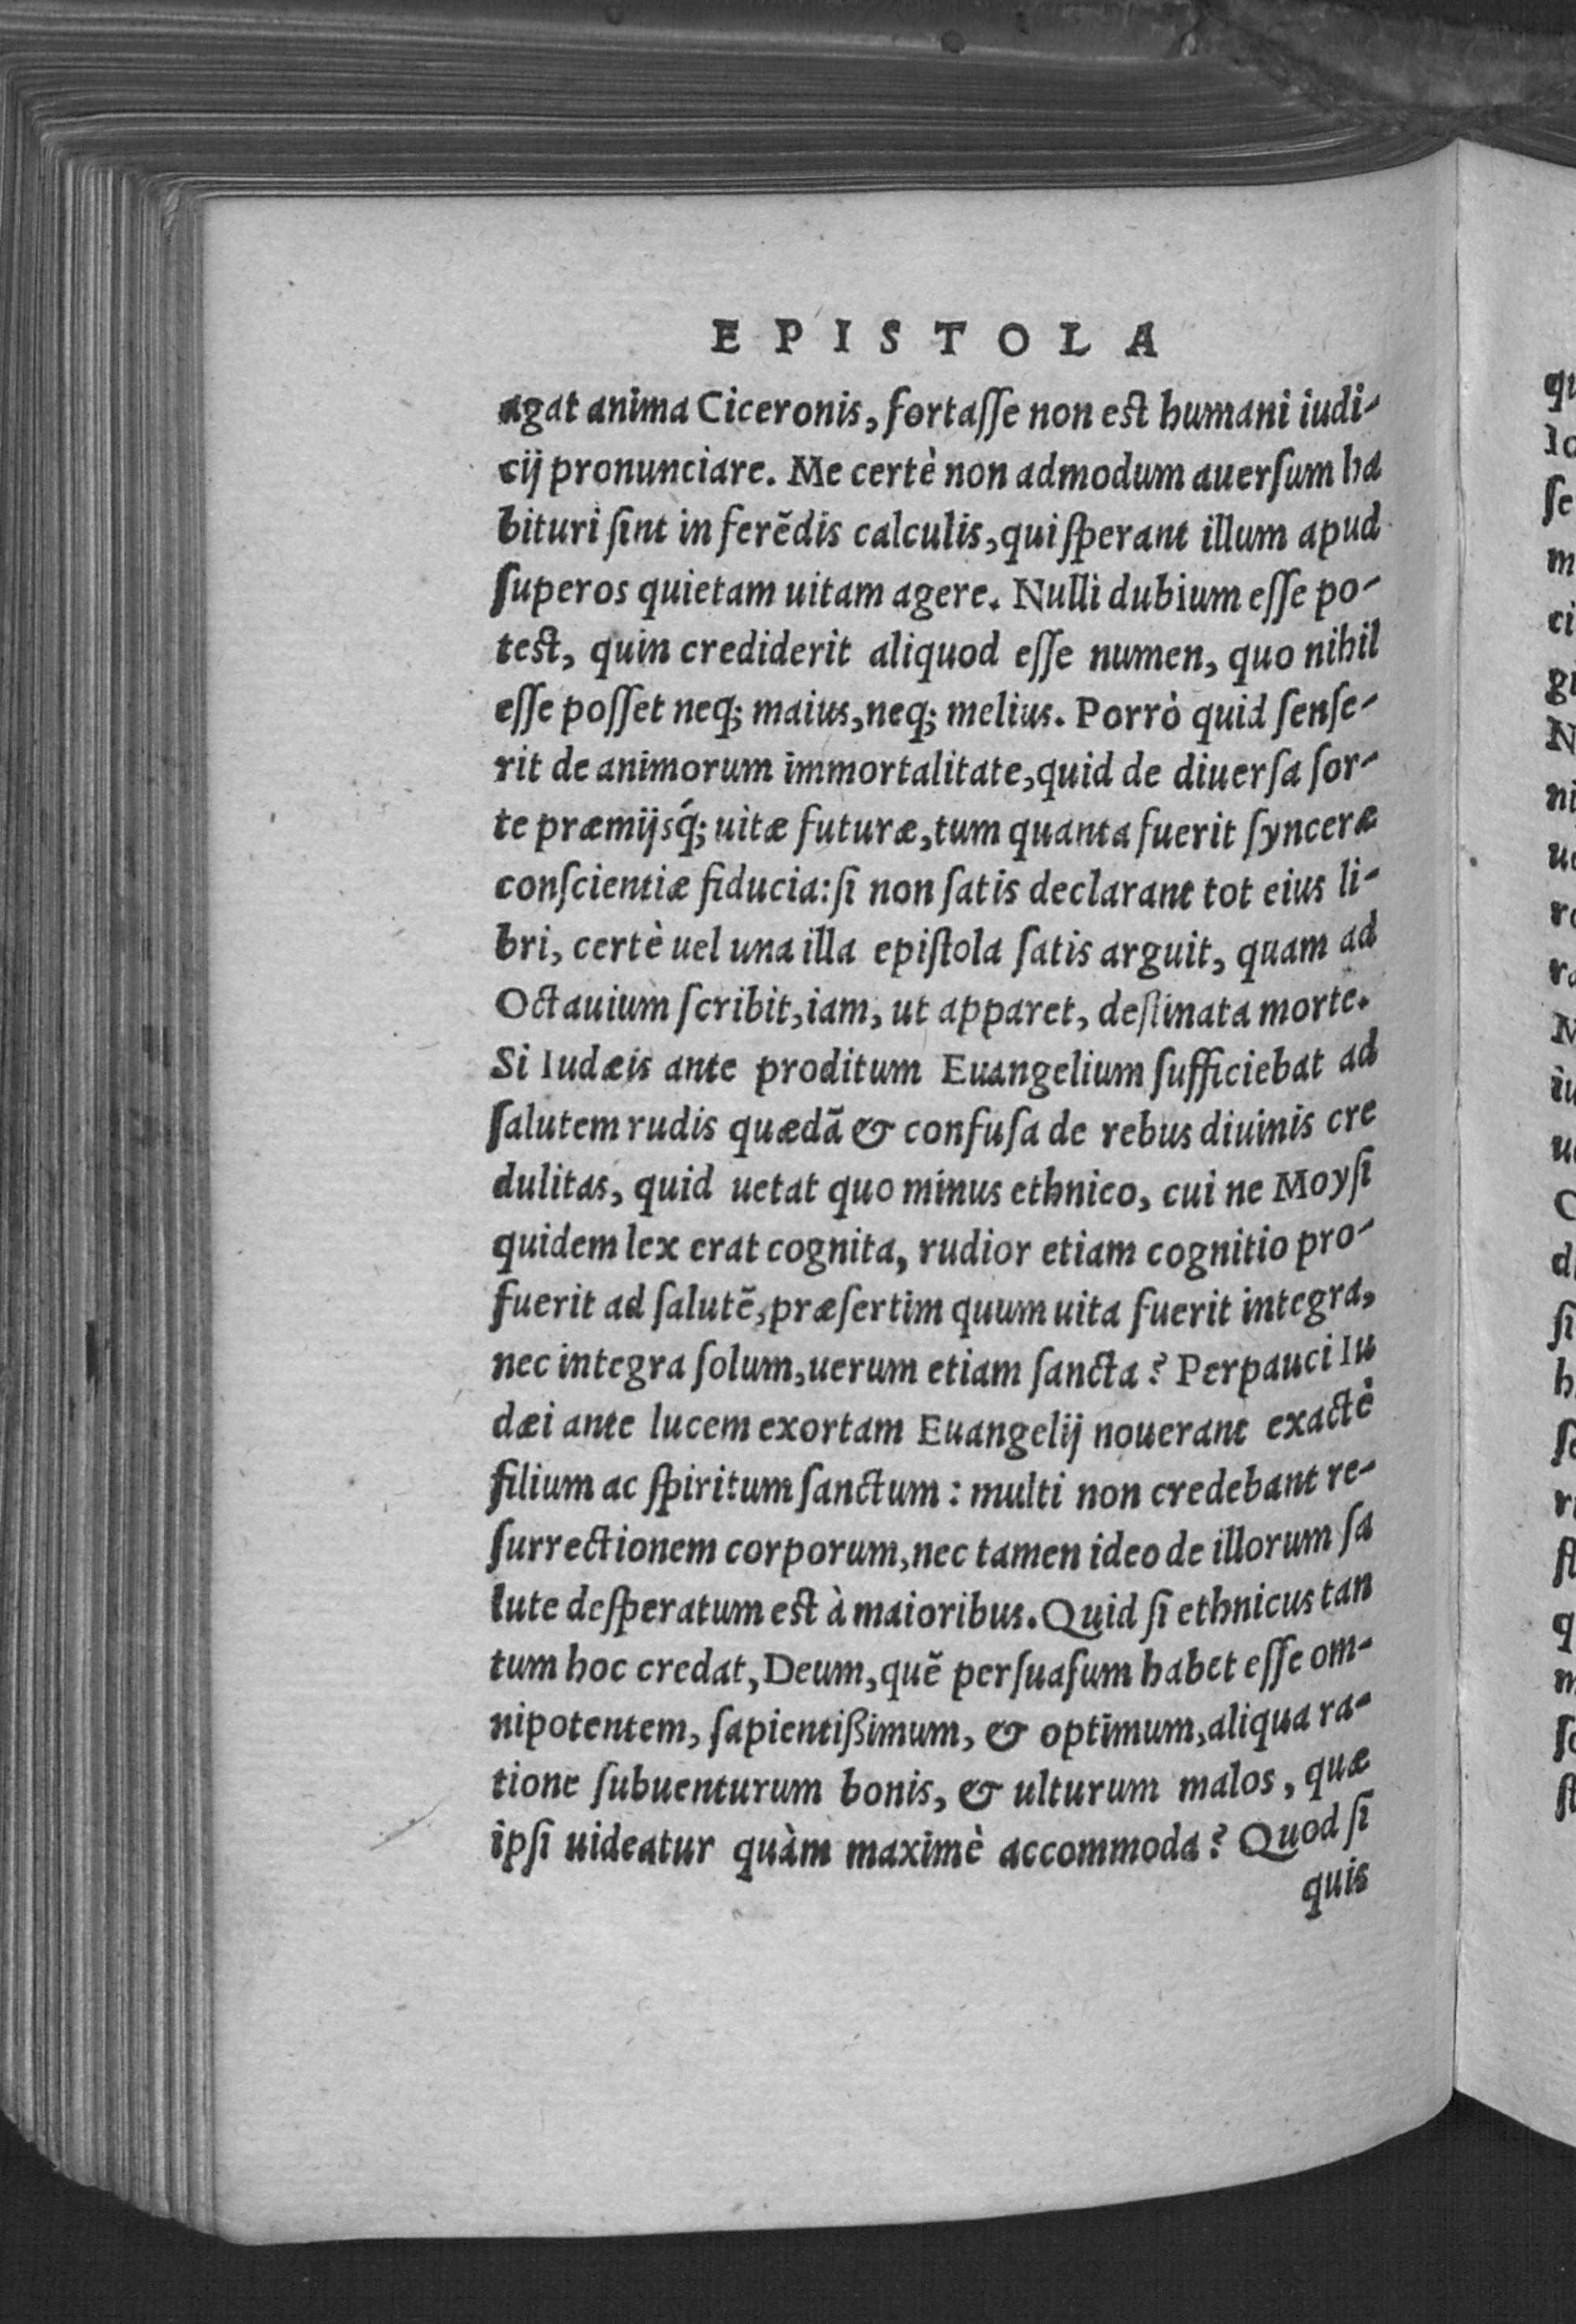 EPISTOLA
agat anima Ciceronis, fortaſſe non est humani iudi-
cij pronunciare. Me certè non admodum auerſum ha
bituri ſint in ferẽdis calculis, qui ſperant illum apud
ſuperos quietam uitam agere. Nulli dubium eſſe po-
test, quin crediderit aliquod eſſe numen, quo nihil
eſſe poſſet neq; maius, neq; melius. Porrò quid ſenſe-
rit de animorum immortalitate, quid de diuerſa ſor-
te præmijsq́; uitæ futuræ, tum quanta fuerit ſynceræ
conſcientiæ fiducia: ſi non ſatis declarant tot eius li-
bri, certè uel una illa epiſtola ſatis arguit, quam ad
Octauium ſcribit, iam, ut apparet, deſtinata morte.
Si Iudæis ante proditum Euangelium ſufficiebat ad
ſalutem rudis quædã & confuſa de rebus diuinis cre
dulitas, quid uetat quo minus ethnico, cui ne Moyſi
quidem lex erat cognita, rudior etiam cognitio pro-
fuerit ad ſalutẽ, præſertim quum uita fuerit integra,
nec integra ſolum, uerum etiam ſancta? Perpauci Iu
dæi ante lucem exortam Euangelij nouerant exactè
filium ac ſpiritum ſanctum: multi non credebant re-
ſurrectionem corporum, nec tamen ideo de illorum ſa
lute deſperatum est à maioribus. Quid ſi ethnicus tan
tum hoc credat, Deum, quẽ perſuaſum habet eſſe om-
nipotentem, ſapientißimum, & optimum, aliqua ra-
tione ſubuenturum bonis, & ulturum malos, quæ
ipſi uideatur quàm maximè accommoda? Quod ſi
quis